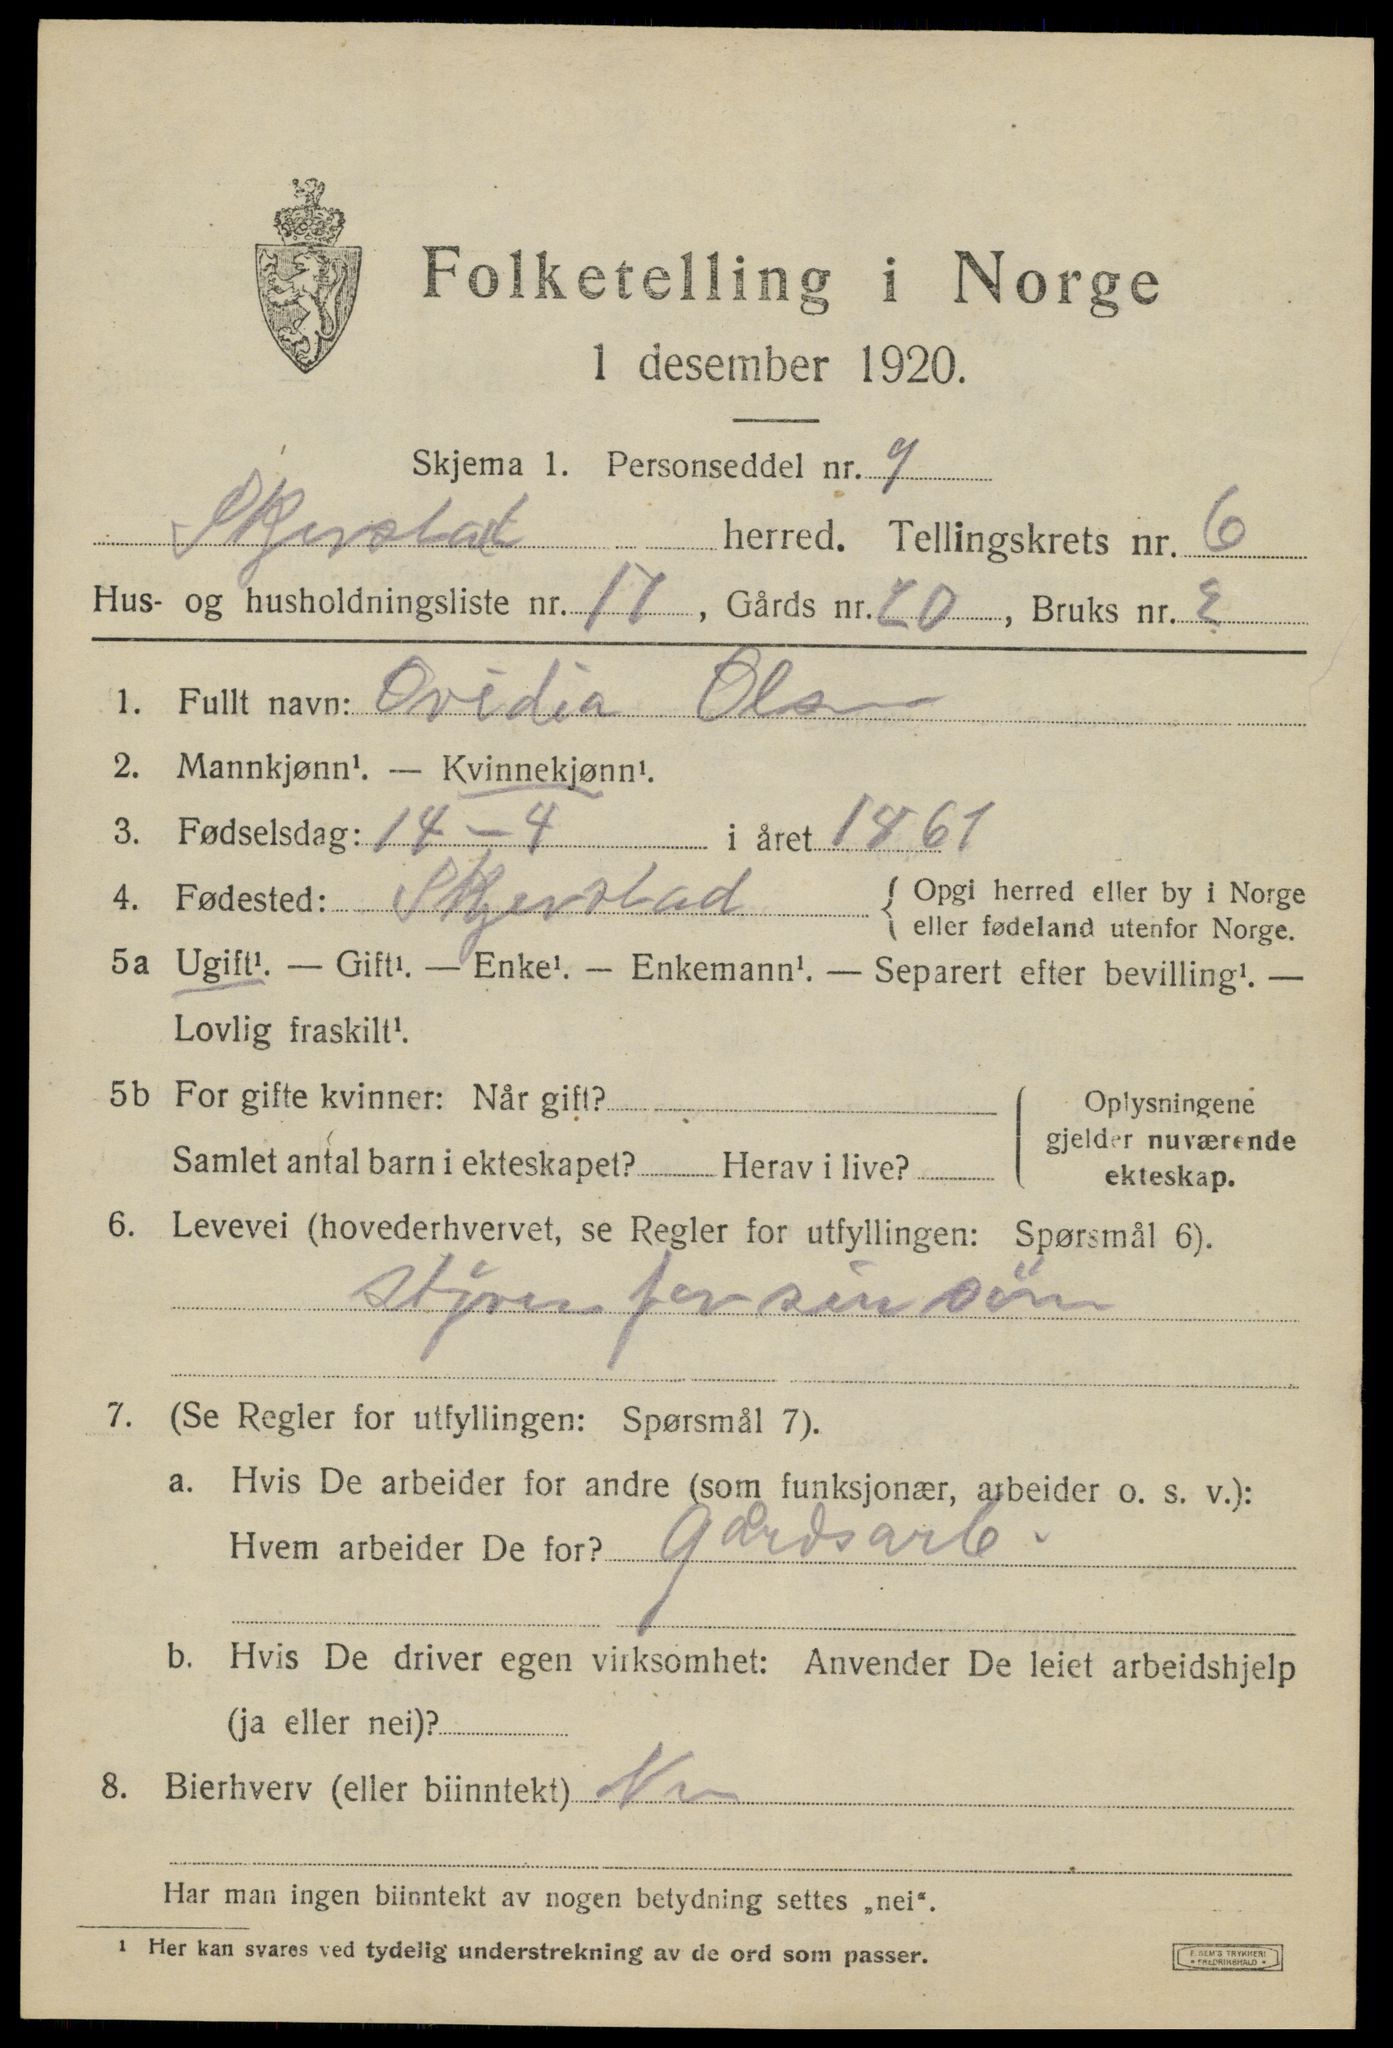 Folketelling i Norge
1 desember 1920.
Skjema 1. Personseddel nr. 9
Skjerstad herred. Tellingskrets nr. 6
Hus- og husholdningsliste nr. 17, Gårds nr. 20, Bruks nr. 2
1. Fullt navn: Ovidia Olsen
2. Mannkjønn¹. — Kvinnekjønn¹.
3. Fødselsdag: 14 – 4 i året 1861
4. Fødested: Skjerstad { Opgi herred eller by i Norge
eller fødeland utenfor Norge.
5a Ugift¹. — Gift¹. — Enke¹. — Enkemann¹. — Separert efter bevilling¹. —
Lovlig fraskilt¹.
5b For gifte kvinner: Når gift?
Samlet antal barn i ekteskapet? Herav i live?
Oplysningene
gjelder nuværende
ekteskap.
6. Levevei (hovederhvervet, se Regler for utfyllingen: Spørsmål 6).
styrer for sin sön
7. (Se Regler for utfyllingen: Spørsmål 7).
a. Hvis De arbeider for andre (som funksjonær, arbeider o. s. v.):
Hvem arbeider De for? Gårdsarb.
b. Hvis De driver egen virksomhet: Anvender De leiet arbeidshjelp
(ja eller nei)?
8. Bierhverv (eller biinntekt) Nei
Har man ingen biinntekt av nogen betydning settes „nei“.
¹ Her kan svares ved tydelig understrekning av de ord som passer.
F. SEM'S TRYKKERI
• FREDRIKSHALD •